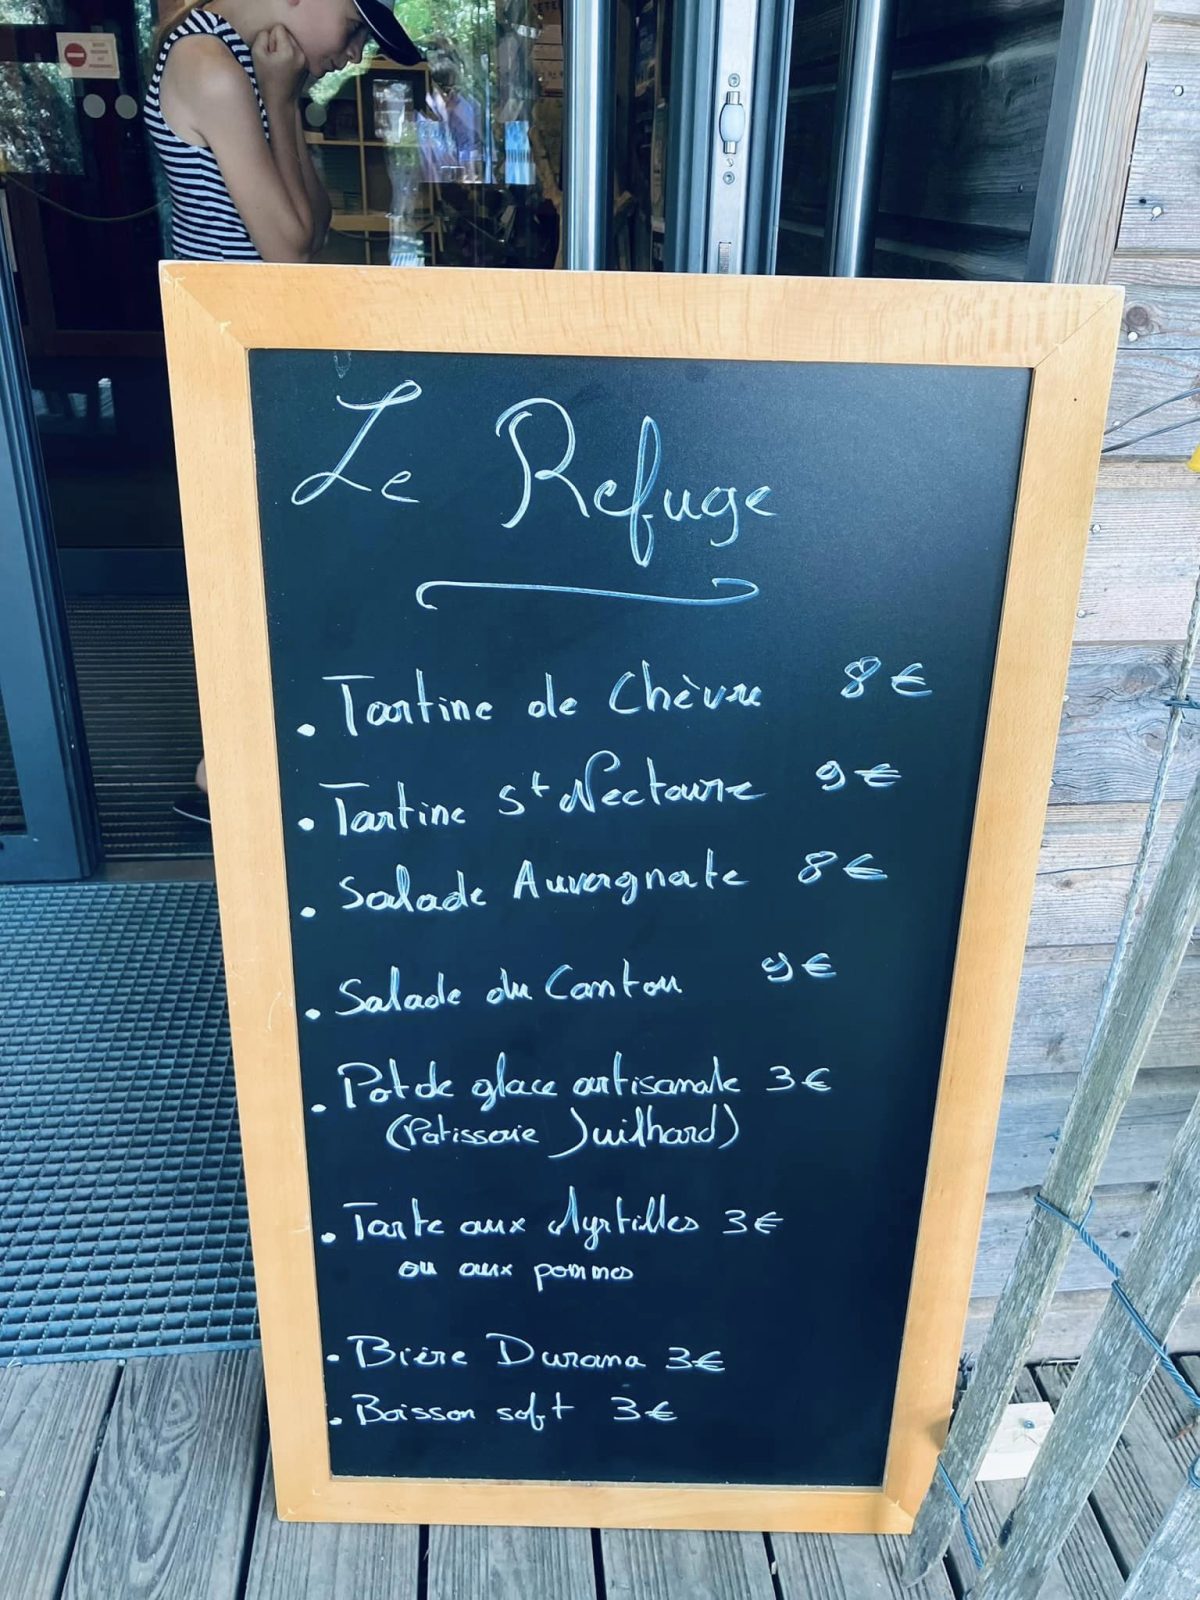 Le Refuge
. Tartine de Chèvre 8€
. Tartine St Nectaire 9€
. Salade Auvergnate 8€
. Salade du Cantou 9€
. Pot de glace artisanale 3€
(Patisserie Juilhard)
. Tarte aux Myrtilles 3€
ou aux pommes
. Bière Durana 3€
. Boisson soft 3€